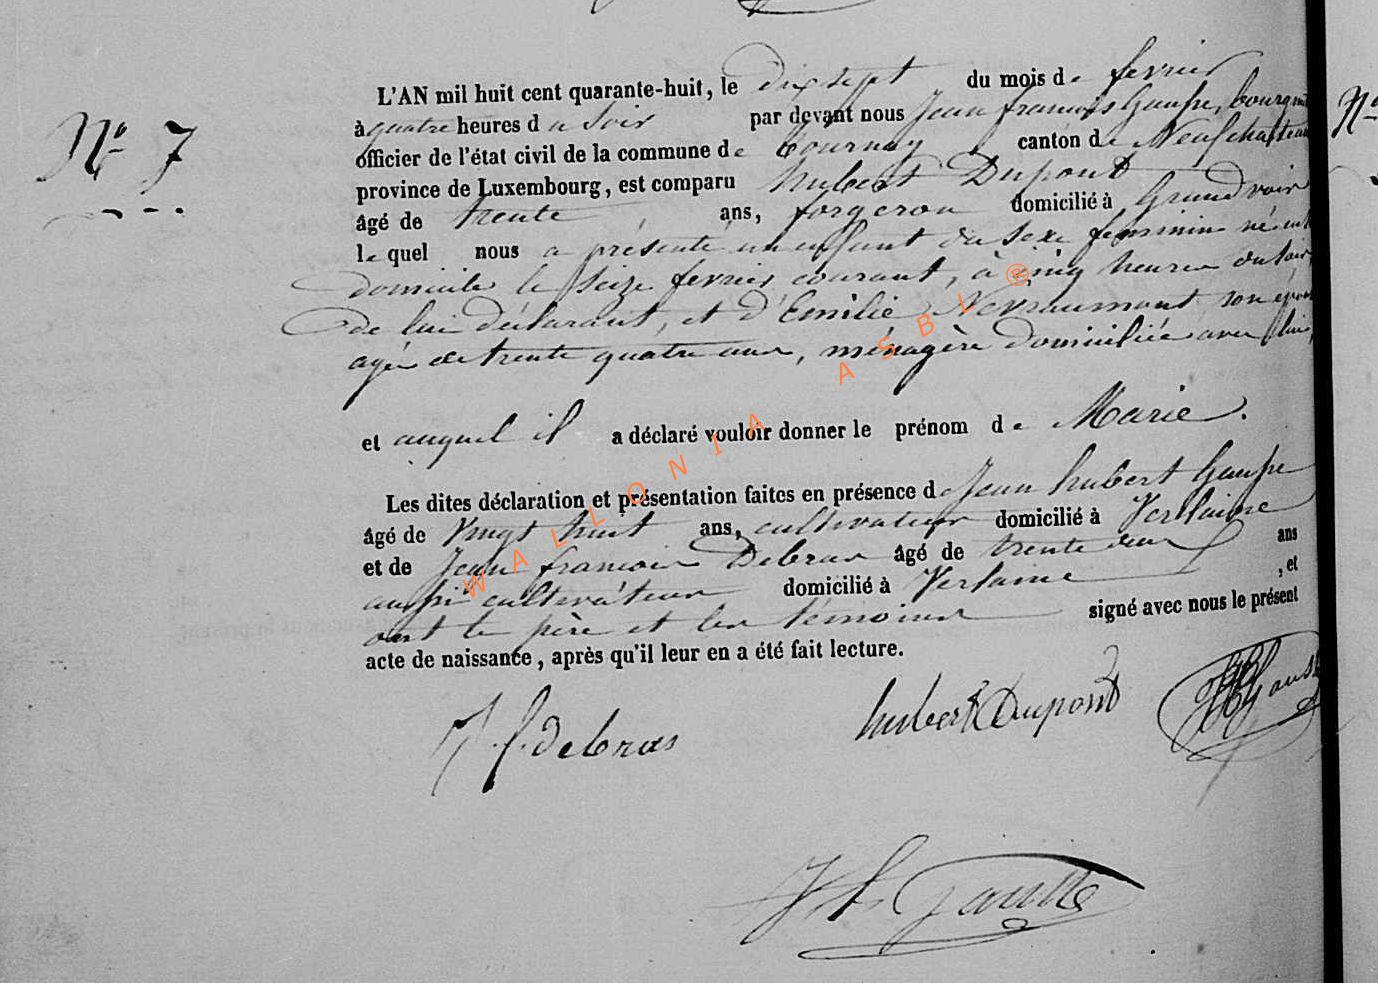 N° 7
L'AN mil huit cent quarante-huit, le dix sept du mois de fevrier
à quatre heures du soir par devant nous Jean françois Gausse, bourgm
officier de l'état civil de la commune de Tournay canton de Neufchateau
province de Luxembourg, est comparu hubert Dupont
âgé de trente ans, forgeron domicilié à Grandvoir
le quel nous a présenté un enfant du sexe feminin né en
domicile le seize fevrier courant, à cinq heures du soir,
de lui déclarant, et d'Emilie son épou
agée de trente quatre ans, ménagère domiciliée avec lui,
et auquel il a déclaré vouloir donner le prénom de Marie.
Les dites déclaration et présentation faites en présence de Jean hubert Gausse
âgé de vingt huit ans, cultivateur domicilié à Verlaine
et de Jean françois Debras âgé de trente deux ans
aussi cultivateur domicilié à Verlaine , et
ont le père et les témoins signé avec nous le présent
acte de naissance, après qu'il leur en a été fait lecture.
J. f. debras hubert Dupont JH Gauss
J f Gausse
N°
WALLONIA ASBL ®